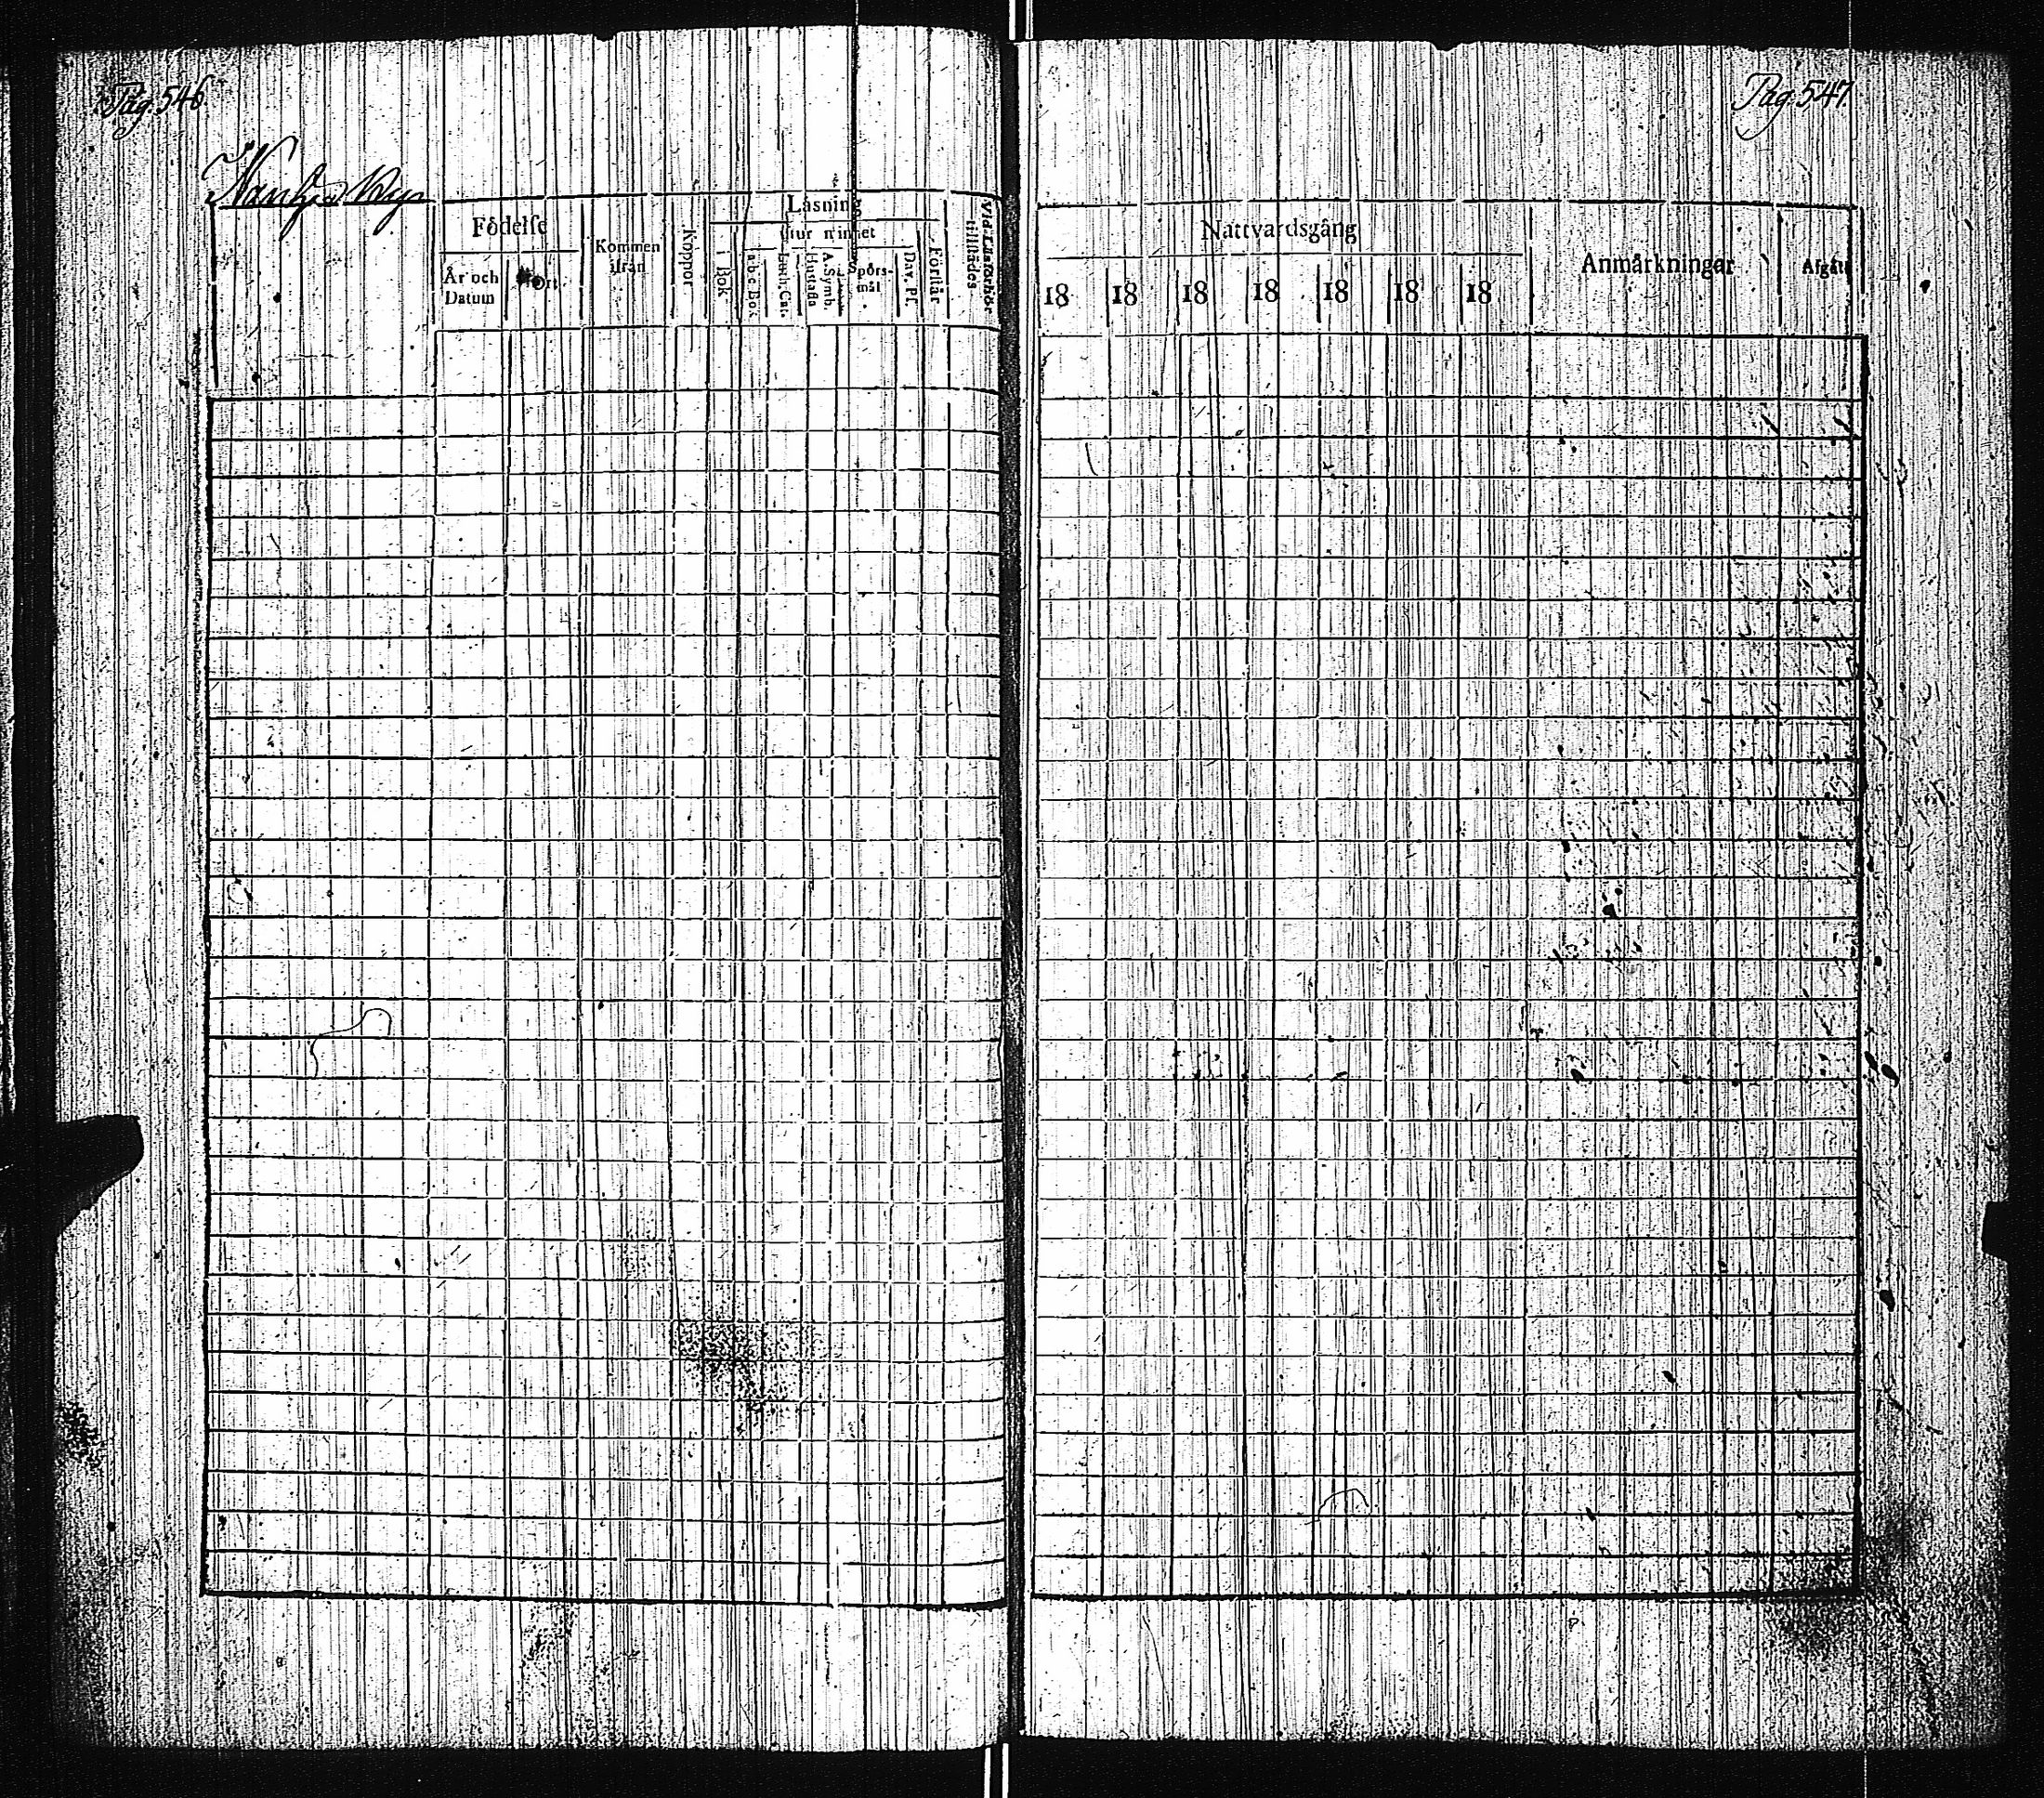 Pag. 546
Födelse
År och
Datum
Ort
Kommen
ifrån
Koppor
Läsning
i Bok
utur minnet
a b c Bok
Luth. Cat.
Hustafla
A. Symb.
Spörs-
mål
Dav. Ps.
Förstår
Vid Läsförhör
tillstädes
Pag. 547.
Nattvardsgång
18 18 18 18 18 18 18
Anmärkningar
Afgått